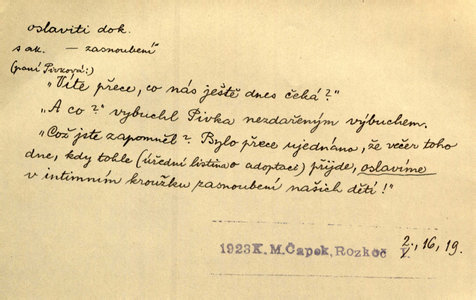 oslaviti dok.
s ak. — zasnoubení
(paní Pivková:)
„Víte přece, co nás ještě dnes čeká?"
„A co?" vybuchl Pivka nezdařeným výbuchem.
„Což jste zapomněl? Bylo přece ujednáno, že večer toho
dne, kdy tohle (úřední listina o adoptaci) přijde, oslavíme
v intimním kroužku zasnoubení našich dětí!"
1923 K. M. Čapek, Rozkoč 2/V., 16, 19.